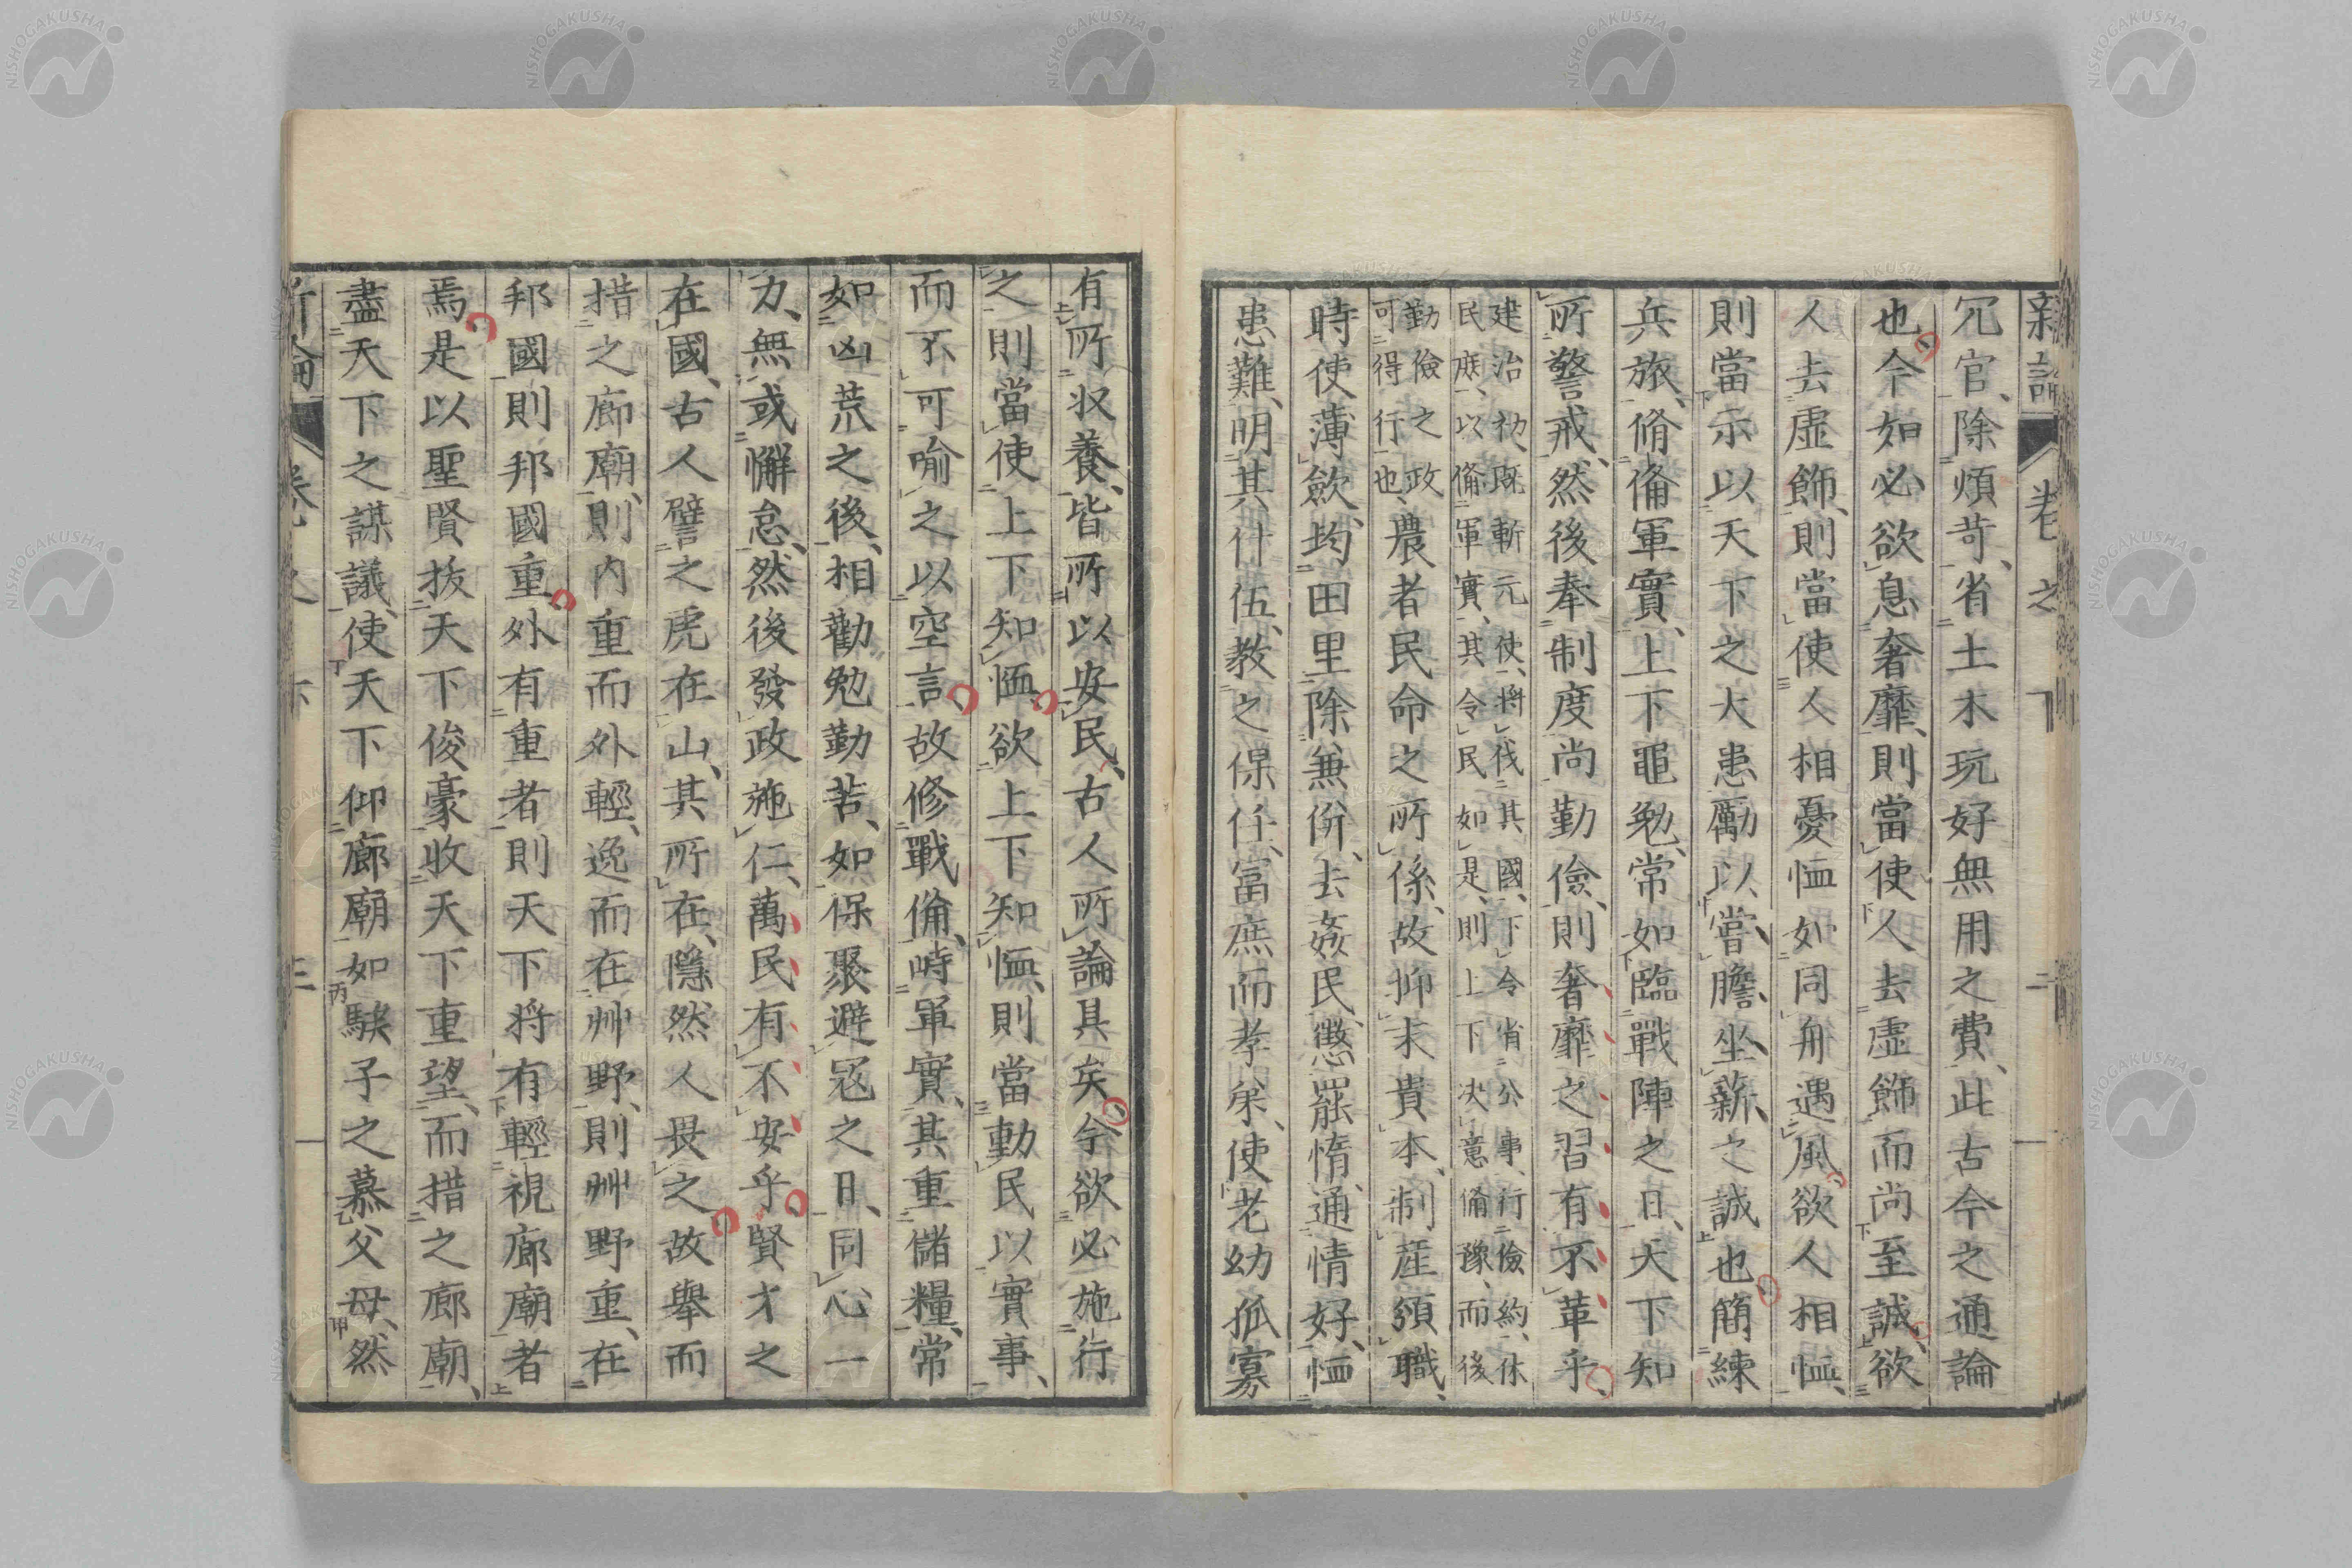 新論 卷之下 二
冗官、除煩苛、省土木玩好無用之費、此古今之通論
也今如必欲息奢靡、則當使人去虛飾而尚至誠欲
人去虛飾、則當使人相憂恤如同舟遇風欲人相恤、
則當示以天下之大患勵以嘗膽、坐薪、之誠也簡練
兵旅、脩備軍實、上下黽勉、常如臨戰陣之日、天下知
所警戒、然後奉制度尚勤儉、則奢靡之習有不革乎、
建治初、既斬元使、將伐其國、下令省公事、行儉約、休
民庶、以備軍實、其令民如是、則上下決意備豫、而後
勤儉之政
可得行也、農者民命之所係、故抑末貴本、制産頒職、
時使薄斂、均田里除兼併、去姦民、懲罷惰、通情好、恤
患難、明其什伍、教之保任、富庶而孝弟、使老幼孤寡
有所收養、皆所以安民、古人所論具矣今欲必施行
之則當使上下知恤欲上下知恤、則當動民以實事、
而不可喻之以空言、故修戰備、峙軍實、其重儲糧、常
如凶荒之後、相勸勉勤苦、如保聚避寇之日、同心一
力、無或懈怠、然後發政施仁、萬民有不安乎賢才之
在國、古人譬之虎在山、其所在、隱然人畏之故舉而
措之廊廟、則內重而外輕、逸而在艸野、則艸野重、在
邦國則邦國重外有重者則天下將有輕視廊廟者
焉是以聖賢拔天下俊豪收天下重望、而措之廊廟、
盡天下之謀議、使天下仰廊廟如騃子之慕父母、然